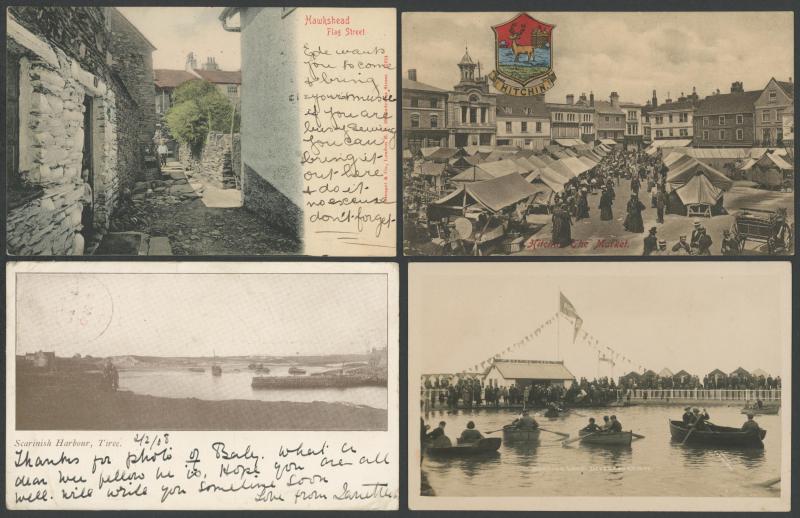 Hawkshead
Flag Street
Ede wants
you to come
& bring
your music
if you are
busy sewing
you can
bring it
out here
& do it
no excuse
don't forget.
HITCHIN
Hitchin, The Market.
Scarinish Harbour, Tiree.
2/2/08
Thanks for photo of Baby. What a
dear wee fellow he is, Hope you are all
well. will write you sometime soon
Love from Janetta